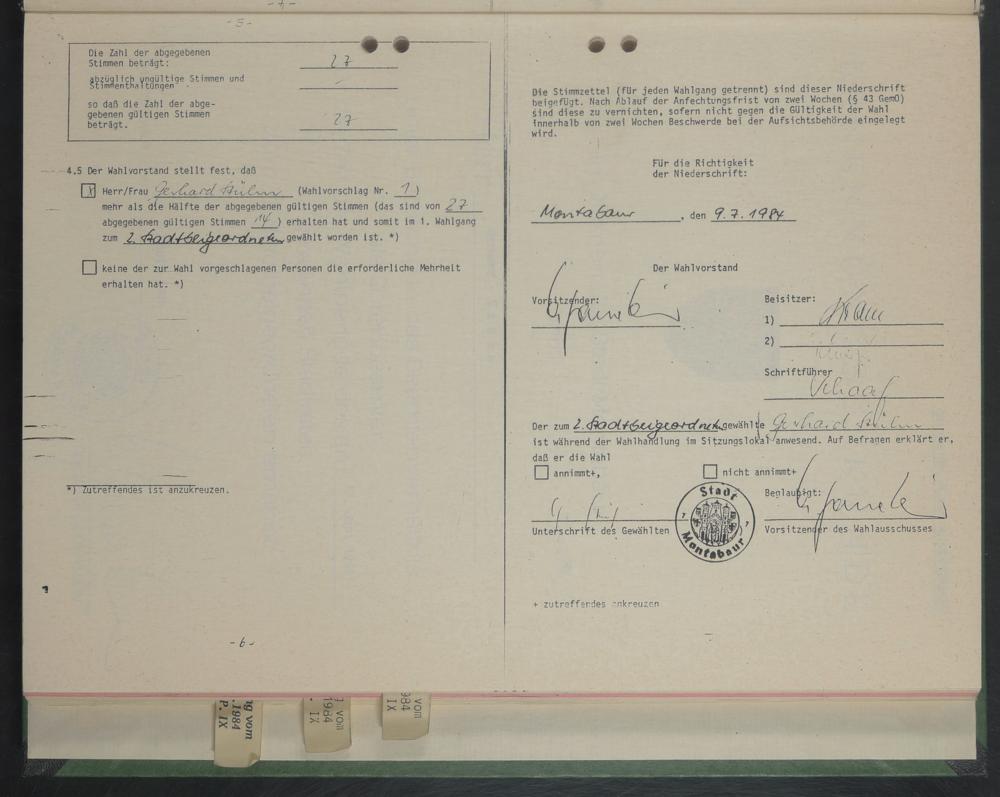 -5-
Die Zahl der abgegebenen
Stimmen beträgt: 27
abzüglich ungültige Stimmen und
Stimmenthaltungen -
so daß die Zahl der abge-
gebenen gültigen Stimmen
beträgt. 27
4.5 Der Wahlvorstand stellt fest, daß
X Herr/Frau Gerhard (Wahlvorschlag Nr. 1)
mehr als die Hälfte der abgegebenen gültigen Stimmen (das sind von 27
abgegebenen gültigen Stimmen 14) erhalten hat und somit im 1. Wahlgang
zum 2. Stadtbeigeordneten gewählt worden ist. *)
keine der zur Wahl vorgeschlagenen Personen die erforderliche Mehrheit
erhalten hat. *)
*) Zutreffendes ist anzukreuzen.
-6-
Die Stimmzettel (für jeden Wahlgang getrennt) sind dieser Niederschrift
beigefügt. Nach Ablauf der Anfechtungsfrist von zwei Wochen (§ 43 GemO)
sind diese zu vernichten, sofern nicht gegen die Gültigkeit der Wahl
innerhalb von zwei Wochen Beschwerde bei der Aufsichtsbehörde eingelegt
wird.
Für die Richtigkeit
der Niederschrift:
Montabaur, den 9.7.1984
Der Wahlvorstand
Vorsitzender:
Beisitzer:
1)
2)
Schriftführer
Schaaf
Der zum 2. Stadtbeigeordneten gewählte Gerhard
ist während der Wahlhandlung im Sitzungslokal anwesend. Auf Befragen erklärt er,
daß er die Wahl
annimmt+, nicht annimmt+
Beglaubigt:
Unterschrift des Gewählten
Stadt
Montabaur
Vorsitzender des Wahlausschusses
+ zutreffendes ankreuzen
g vom
.1984
P. IX
vom
1984
IX
vom
984
IX